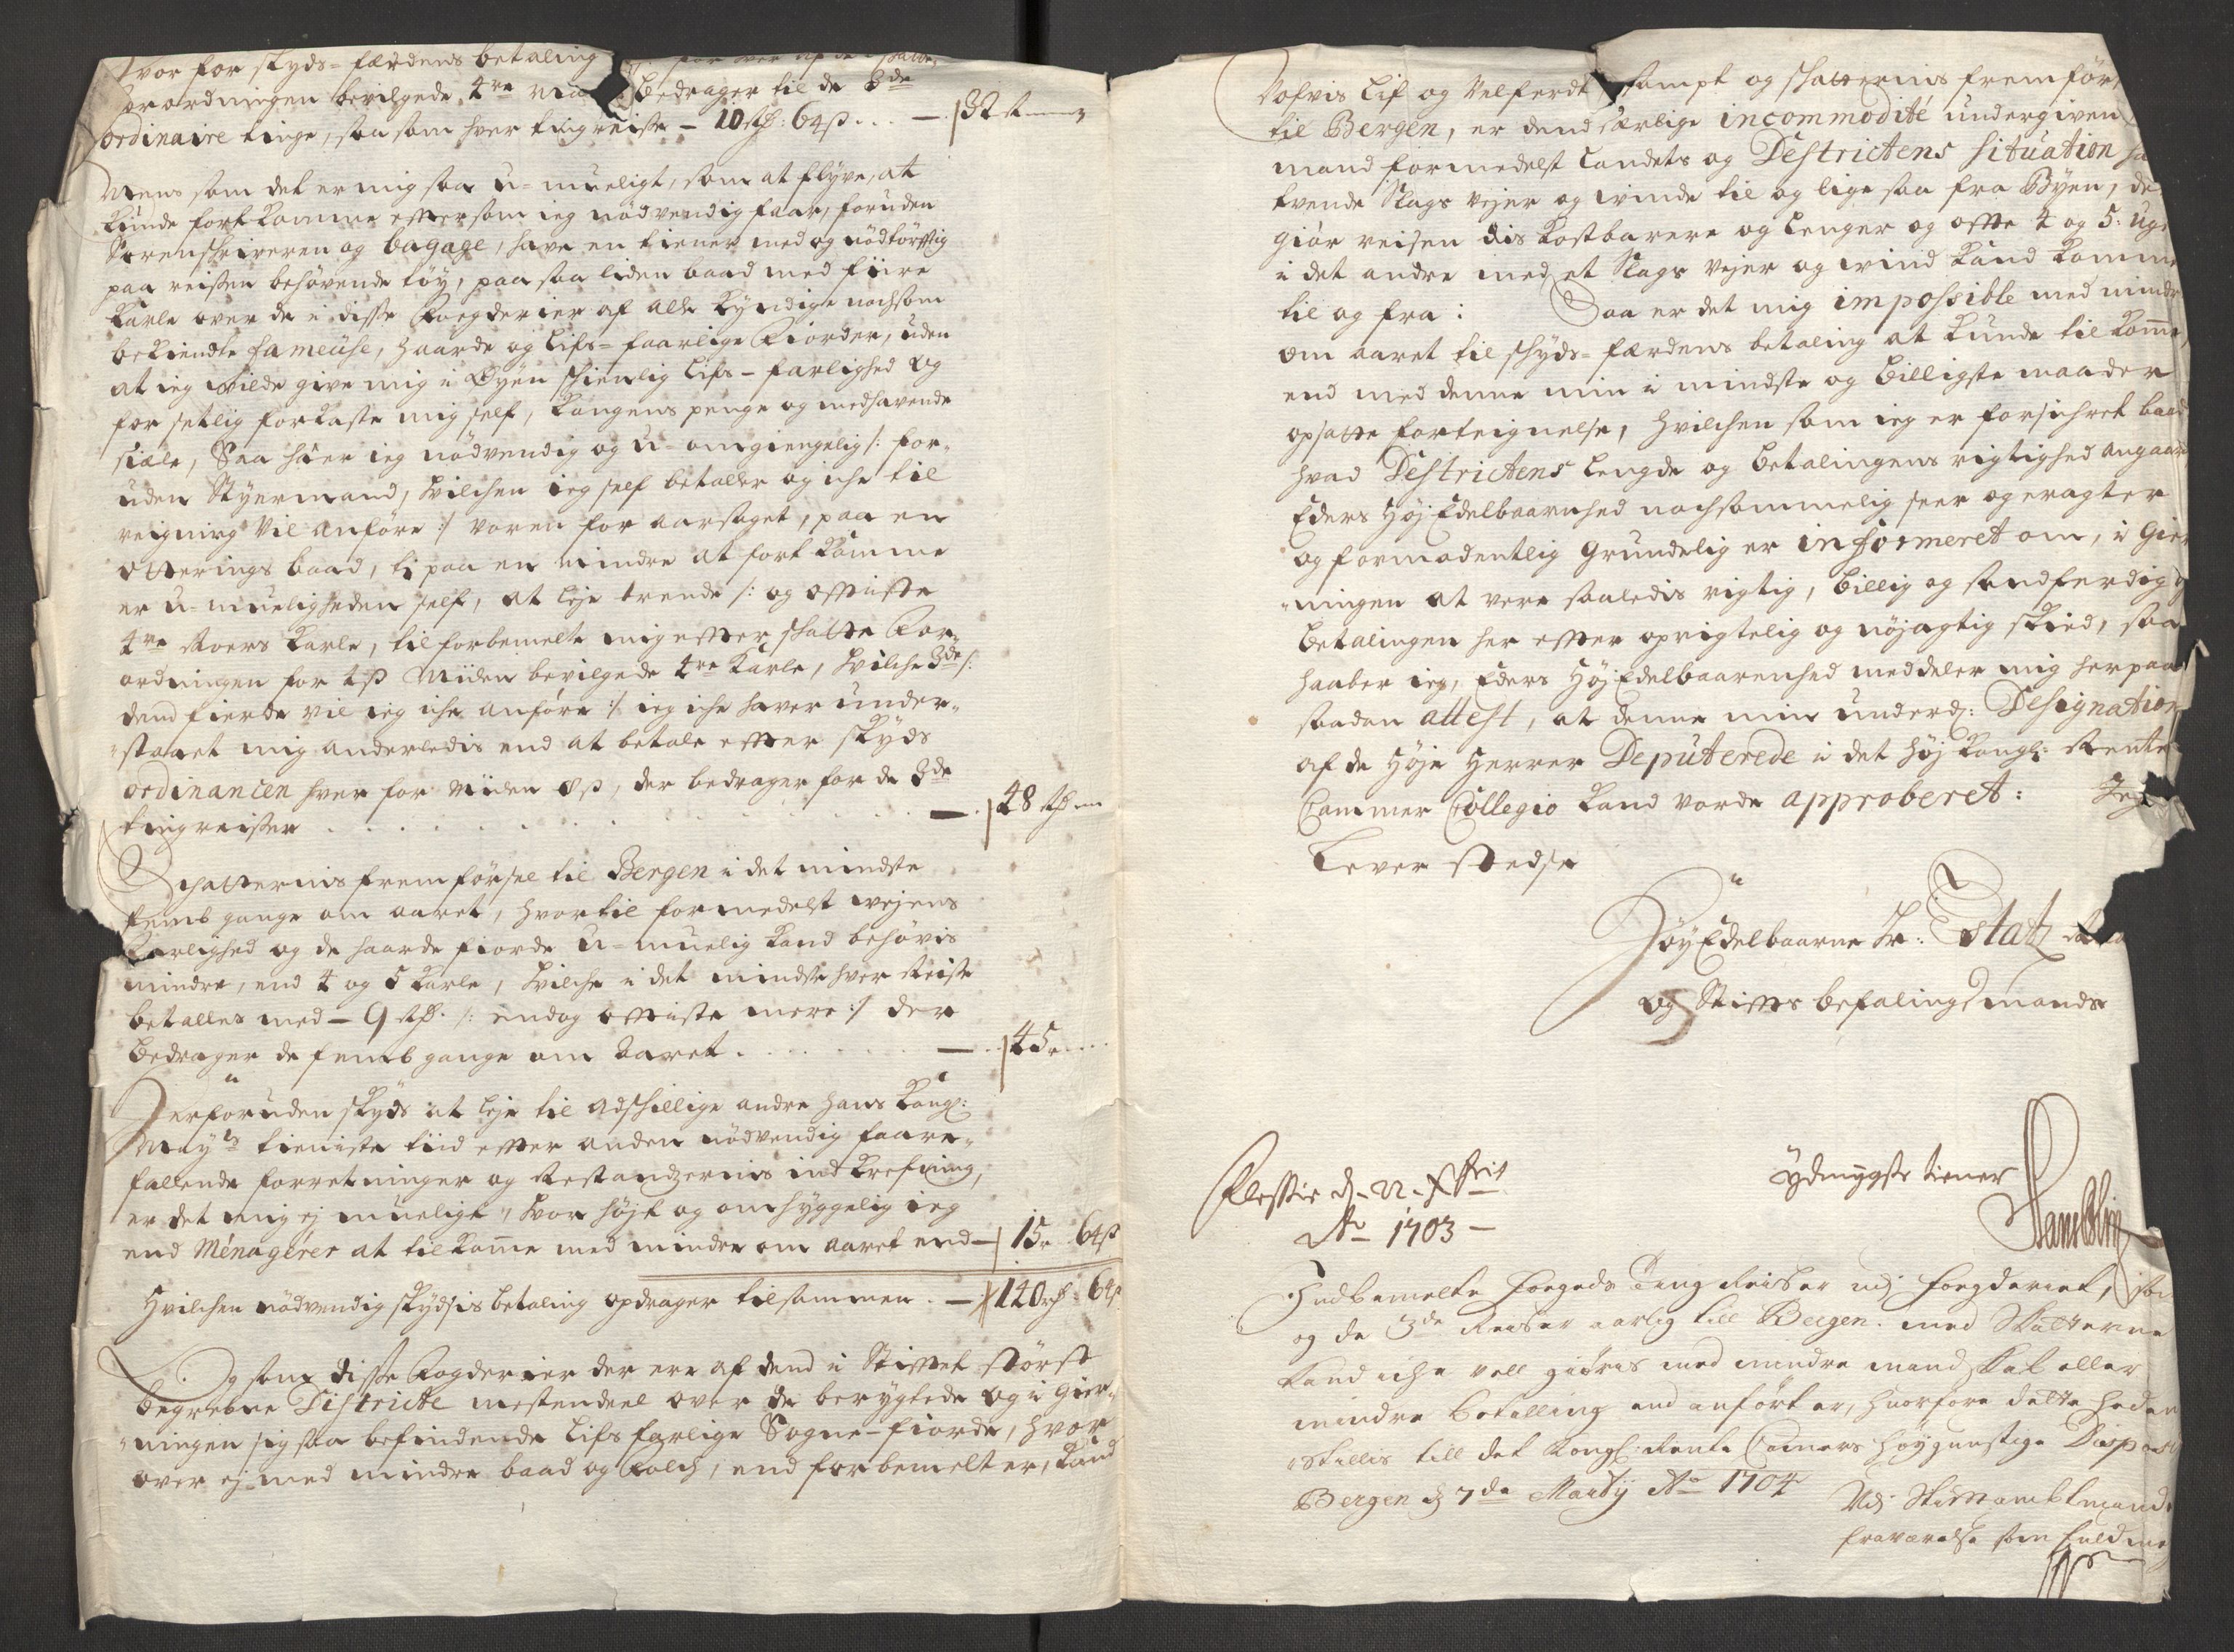 hvor for skyds-færdens betaling
forordningen bevilgede 4re bedrager til de 3de
ordinaire tinge, saa som hver tingreise – 10 rd: 64 s
Mens som det er mig saa u-mueligt, som at flyve, at
kunde fortkomme eftersom ieg nødvendig faar, foruden
Sorenskriveren og bagage, have en tiener med og nødtørfftig
paa reisen behøvende tøy, paa saa liden baad med fiire
Karle over de i disse Fogderier af alle kyndige nochsom
bekiendte fameuse, haarde og Lifs-faarlige Fiorder, uden
at ieg vilde give mig i Øyen schienlig Lifs-farlighed og
forsetlig forkaste mig self, Kongens penge og medhavende
siæle, Saa ieg nødvendig og u-omgiengelig /: for-
uden Styermand, hvilchen ieg self betaller og iche til
reigning vil anføre :/ voren for aarsaget, paa en
otterings baad, ti paa en mindre at fortkomme
er u-mueligheden self, at leje trende /: og offtiste
4re Roers Karle, til forbemelte mig effter schatte For-
ordningen for 4 s Miilen bevilgede 4re Karle, hvilche 3de /:
dend fierde vil ieg iche anføre :/ ieg iche haver under-
staaet mig anderledis end at betale effter skyds
ordinancen hver for Miilen 8 s, der bedrager for de 3de
tingreiser . . . . . – 48 rd
Schatternis fremførsel til Bergen i det mindste
femb gange om aaret, hvortil formedelst vejens
Farlighed og de haarde fiorde u-muelig kand behøvis
mindre, end 4 og 5 Karle, hvilche i det mindste hver Reise
betalles med – 9 rd. /: endog offtiste mere :/ der
bedrager de femb gange om Aaret . . . . – 45
Herforuden skyds at leje til adschillige andre hans Kongl:
May:ts tieniste tiid effter anden nødvendig faare-
fallende forretninger og Restandzernis indkrefning,
er det mig ej mueligt, hvor højt og omhyggelig ieg
end Ménagérer at tilkomme med mindre om aaret end – 15 64 s
Hvilchen nødvendig skydsis betaling opdrager tilsammen . – 120 rd 64 s
Og som disse Fogderier der ere af dend i Stifftet størst
begrebne Districte mestendeel over de berygtede og i gier-
ningen sig saa befindende Lifs farlige Sogne-fiorde, hvor
over ej med mindre baad og Folch, end forbemelt er, kand
Vofvis Lif og Velferdt, sampt og schatternis fremfør
til Bergen, er dend særlige incommodité undergiven
mand formedelst Landets og Destrictens Situation
tvende Slags vejer og vinde til og lige saa fra Byen, de
giør reisen dis kostbarere og lenger og offte 4 og 5: Uge
i det andre med et Slags vejer og vind kand komme
til og fra: Saa er det mig impossible med mindre
om aaret til schyds-færdens betaling at kunde tilkomme,
end med denne min i mindste og billigste maader
opsatte forteignelse, hvilchen som ieg er forsichret baade
hvad Destrictens lengde og betalingens rigtighed angaar
Eders Høj Edelbaarnhed nochsommelig seer og eragter
og formodentlig grundelig er informeret om, i gier
ningen at vere saaledis rigtig, billig og sandferdig
betalingen her effter oprigtelig og nøjagtig skied, saa
haaber ieg, Eders Høj Edelbaarenhed meddeler mig herpaa
saadan attest, at denne min underd: Designation
af de Høje Herrer Deputerede i det høj Kongl: Rente-
Cammer Collegio kand vorde approberet: Jeg
Lever stedse
Høy Edelbaarne Hr: Estatz
og Stiffts befalingsmands
ydmygste tiener
d. 22. Xbris
Ao 1703 –
Indbemelte Fogeds Ting Reiser udj fogderiet,
og de 3de Reiser aarlig till Bergen med Skatterne
kand iche vell giøris med mindre mandskab eller
mindre betalling end anført er, huorfore dette heden
stillis till det Kongl: Rente Camers høygunstige
Bergen d 7de Martij Ao 1704
Udj Stifftamtmand
fraværelse som fuldme